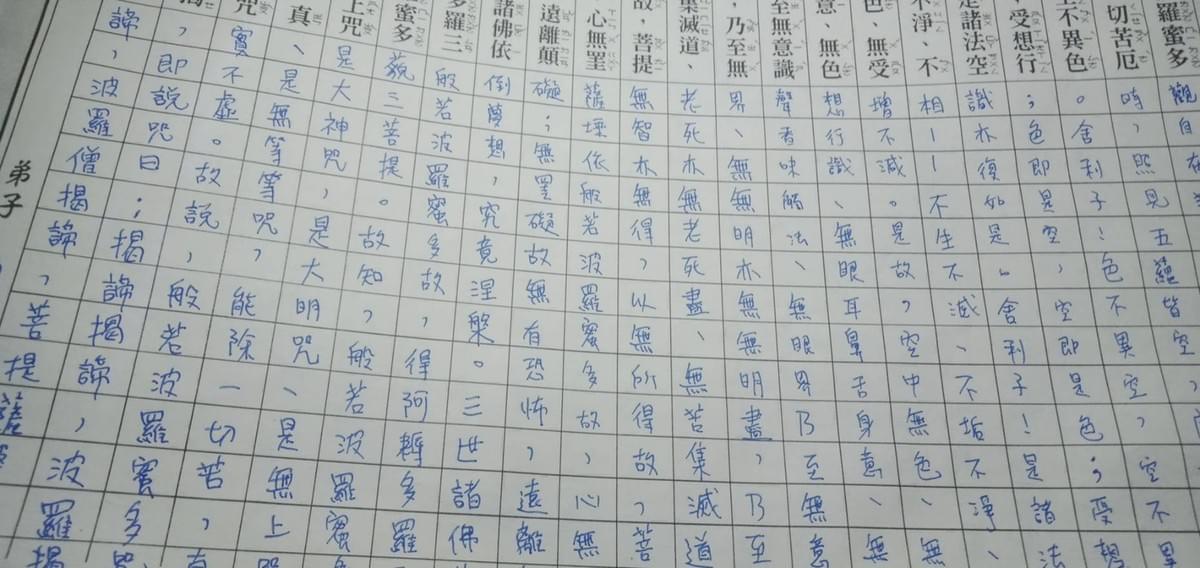 羅蜜多
切苦厄
不異色
受想行
是諸法空
不淨、不
色、無受
意、無色
至無意識
,乃至無
集滅道、
故,菩提
、心無罣
遠離顛
諸佛依
多羅三
蜜多
上咒
真
咒
觀自在
時,照見五蘊皆空,
。舍利子!色不異空,空不異
;色即是空,空即是色;受想
識亦復如是。舍利子!是諸法
相--不生不滅、不垢不淨、
增不減。是故,空中無色、無
想行識、無眼耳鼻舌身意、無
聲香味觸法、無眼界乃至無意
界、無無明亦無無明盡,乃至
老死亦無老死盡、無苦集滅道
無智亦無得,以無所得故,菩
薩埵依般若波羅蜜多故,心無
礙;無罣礙故無有恐怖,遠離
倒夢想,究竟涅槃。三世諸佛
般若波羅蜜多故,得阿耨多羅
藐三菩提。故知,般若波羅蜜
是大神咒,是大明咒、是無上咒
、是無等等咒,能除一切苦,有
實不虛。故說,般若波羅蜜多咒
,即說咒曰;揭諦揭諦,波羅揭
諦,波羅僧揭諦,菩提薩
弟子